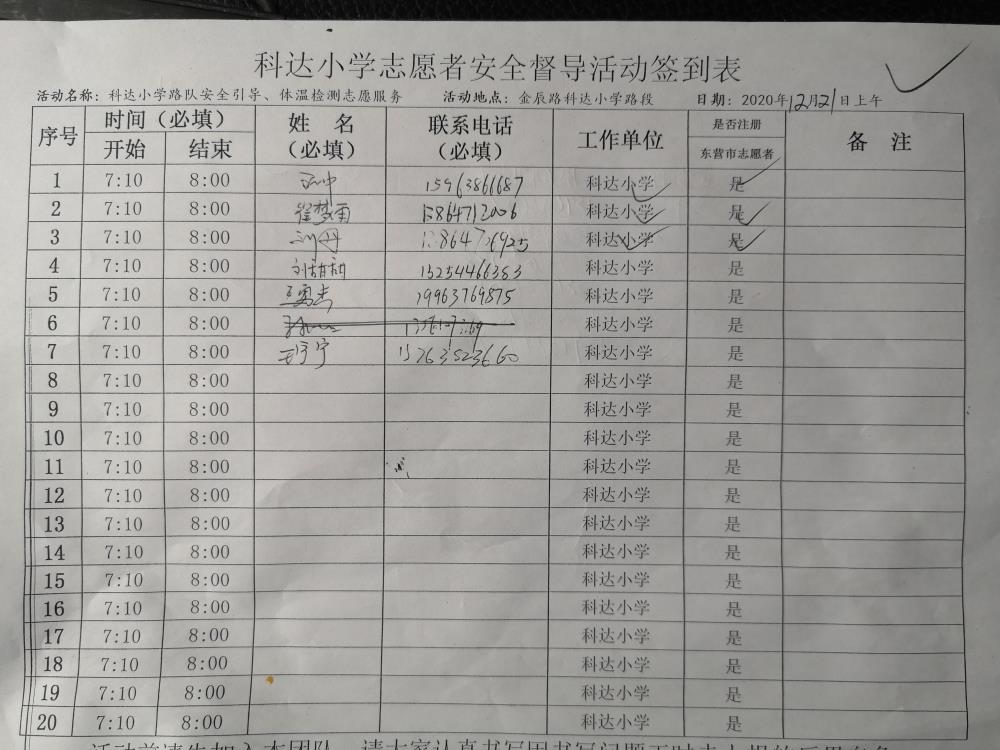 科达小学志愿者安全督导活动签到表
活动名称：科达小学路队安全引导、体温检测志愿服务 活动地点：金辰路科达小学路段 日期：2020年12月21日上午
序号 时间（必填） 姓 名（必填） 联系电话（必填） 工作单位 是否注册 备 注
开始 结束 东营市志愿者
1 7:10 8:00 15963866687 科达小学 是
2 7:10 8:00 翟梦雨 15864712006 科达小学 是
3 7:10 8:00 刘丹 科达小学 是
4 7:10 8:00 刘甜甜 15254466383 科达小学 是
5 7:10 8:00 19963769875 科达小学 是
6 7:10 8:00 科达小学 是
7 7:10 8:00 王宁宁 15263523660 科达小学 是
8 7:10 8:00 科达小学 是
9 7:10 8:00 科达小学 是
10 7:10 8:00 科达小学 是
11 7:10 8:00 科达小学 是
12 7:10 8:00 科达小学 是
13 7:10 8:00 科达小学 是
14 7:10 8:00 科达小学 是
15 7:10 8:00 科达小学 是
16 7:10 8:00 科达小学 是
17 7:10 8:00 科达小学 是
18 7:10 8:00 科达小学 是
19 7:10 8:00 科达小学 是
20 7:10 8:00 科达小学 是